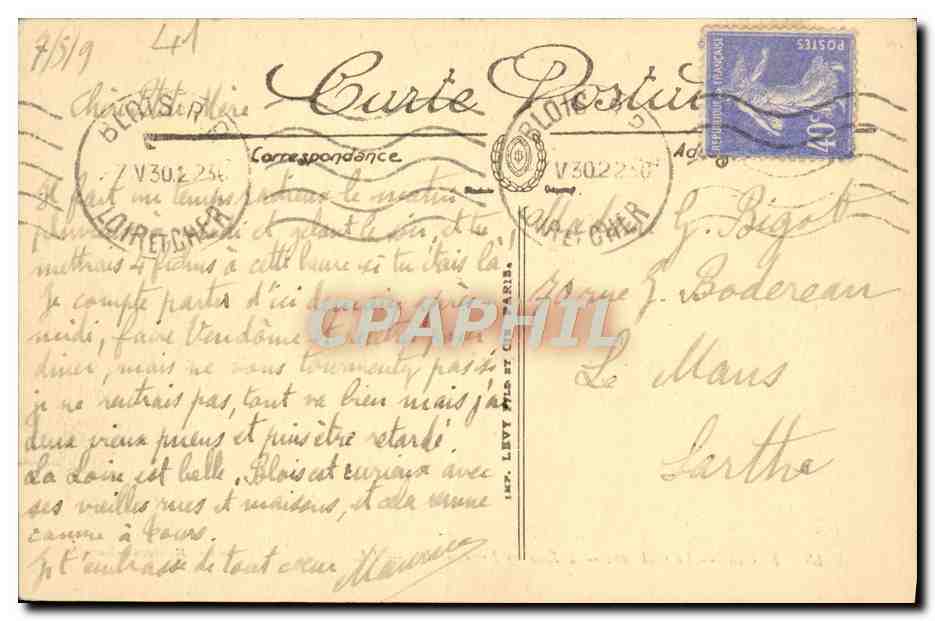 7/5/9
41
Carte Postale
Chère Petite Mère
BLOIS R.P
7 V 30.2230
LOIR ET CHER
BLOIS R.P
V 30.2230
LOIR ET CHER
REPUBLIQUE FRANÇAISE
POSTES
40c
Correspondance
Modèle Déposé
Il fait un temps le matin
et gelant le soir, et tu
mettrais 4 fichus à cette heure si tu étais là
Je compte partir d'ici demain après
midi, faire Vendôme et
diner, mais ne vous tourmentez pas si
je ne rentrais pas, tout va bien mais j'ai
deux vieux pneus et puis être retardé.
La Loire est belle, Blois est curieux avec
ses vieilles rues et maisons, et cela remue
comme à Tours.
Je t'embrasse de tout cœur Maurice
IMP. LEVY FILS ET CIE PARIS.
Madame G. Bigot
rue G. Bodereau
Le Mans
Sarthe
CPAPHIL